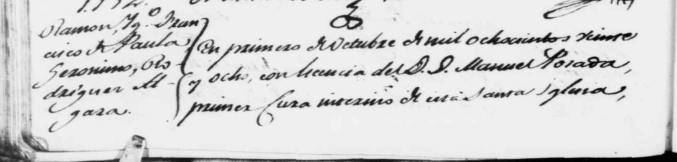 Ramon, Ygo. Fran
cisco de Paula
Geronimo, Ro-
driguez Al-
gara.
En primero de Octubre de mil ochocientos veinte
y ocho, con licencia del D. D. Manuel Posada,
primer Cura interino de esta Santa Iglesia,